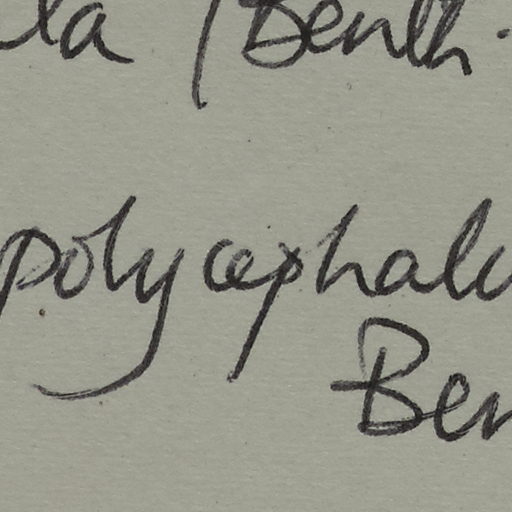 la (Benth.
polycephalu
Ben